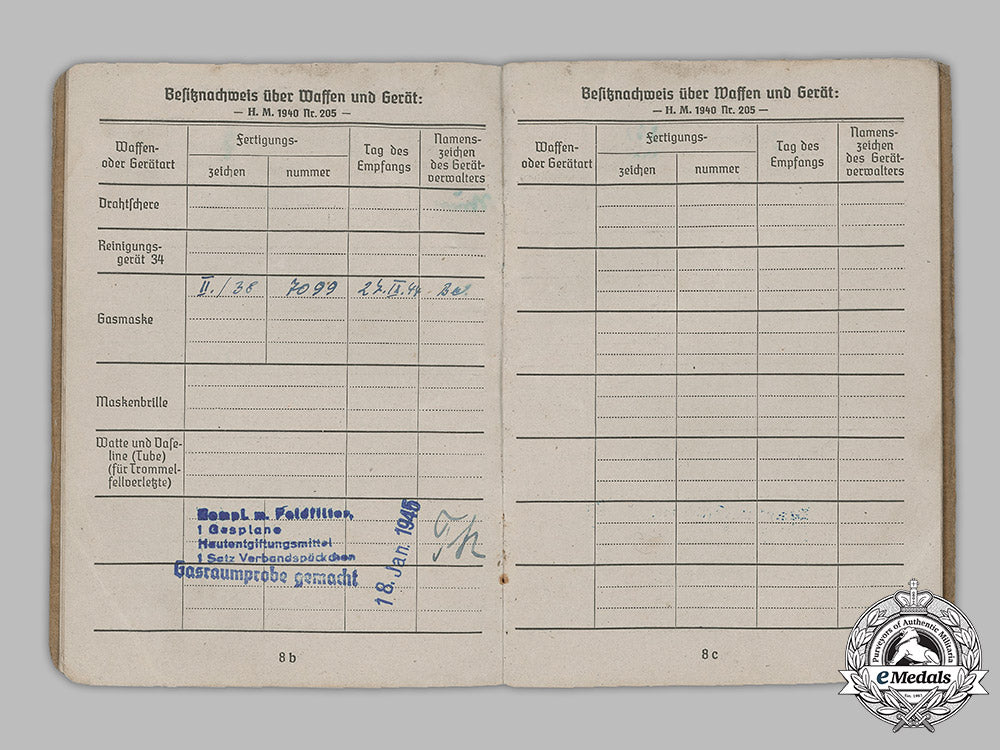 Besitznachweis über Waffen und Gerät:
— H. M. 1940 Nr. 205 —
Waffen-
oder Gerätart
Fertigungs-
zeichen
nummer
Tag des
Empfangs
Namens-
zeichen
des Gerät-
verwalters
Drahtschere
Reinigungs-
gerät 34
II./38 7099 27.IX.44
Gasmaske
Maskenbrille
Watte und Vase-
line (Tube)
(für Trommel-
fellverletzte)
Kompl. m. Feldfilter,
1 Gasplane
Hautentgiftungsmittel
1 Satz Verbandspäckchen
Gasraumprobe gemacht
18. Jan. 1945
8 b
Besitznachweis über Waffen und Gerät:
— H. M. 1940 Nr. 205 —
Waffen-
oder Gerätart
Fertigungs-
zeichen
nummer
Tag des
Empfangs
Namens-
zeichen
des Gerät-
verwalters
8 c
Purveyors of Authentic Militaria
eMedals